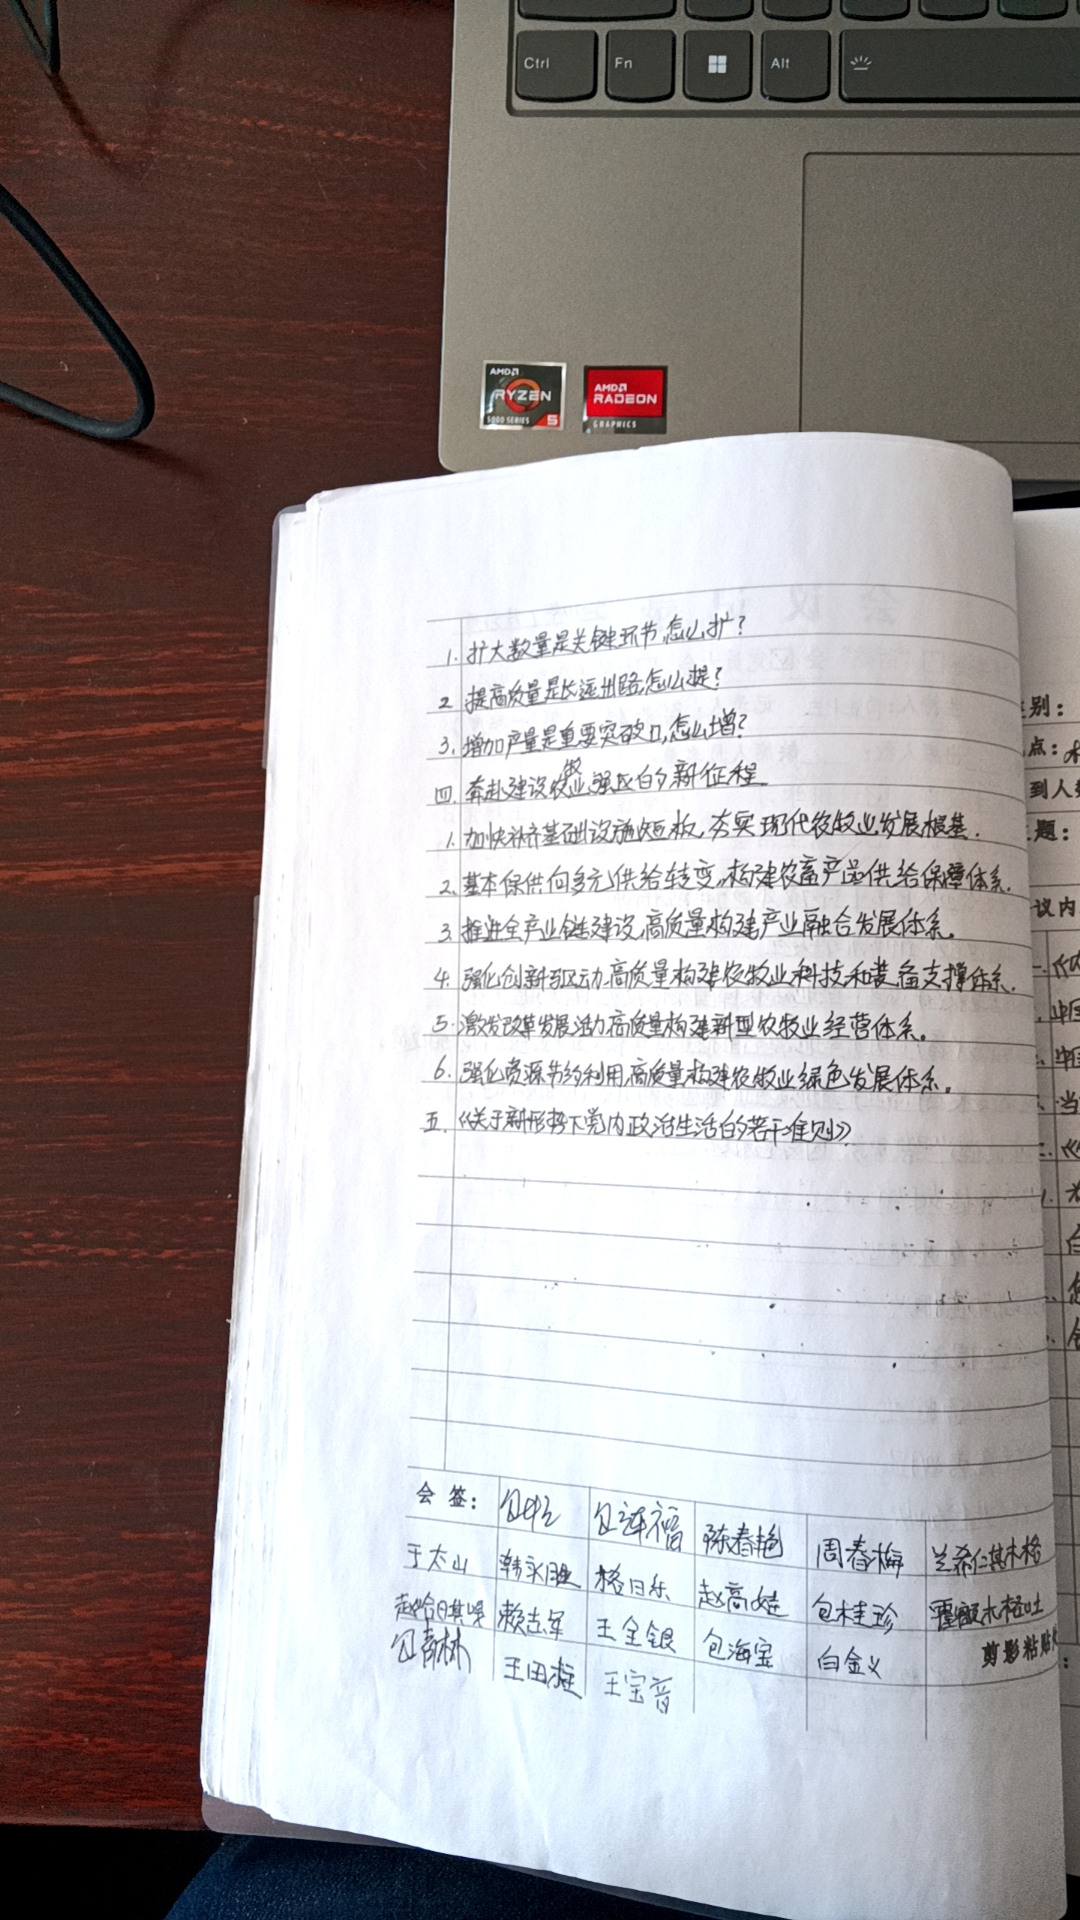 Ctrl
Fn
Alt
AMD
RYZEN
5000 SERIES 5
AMD
RADEON
GRAPHICS
1. 扩大数量是关键环节,怎么扩?
2 提高质量是长远出路,怎么提?
3. 增加产量是重要突破口,怎么增?
四. 奔赴建设农牧业强区的新征程.
1. 加快补齐基础设施短板,夯实现代农牧业发展根基.
2. 基本保供向多元供给转变,构建农畜产品供给保障体系.
3. 推进全产业链建设,高质量构建产业融合发展体系.
4. 强化创新驱动,高质量构建农牧业科技和装备支撑体系.
5. 激发改革发展活力,高质量构建新型农牧业经营体系.
6. 强化资源节约利用,高质量构建农牧业绿色发展体系.
五. 《关于新形势下党内政治生活的若干准则》
会 签:
包连福 陈春艳 周春梅 兰希仁其木格
王太山 韩永胜 格日乐 赵高娃 包桂珍
赖志军 王金银 包海宝 白金义
包青林 王田柱 王宝音
剪影粘贴
别:
点:
到人
题:
议内